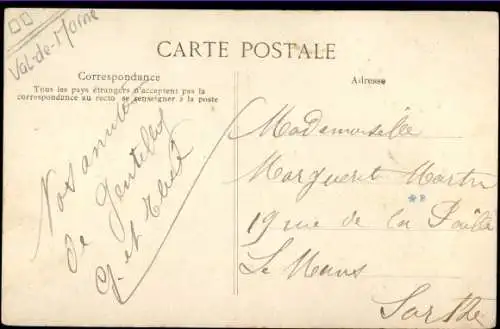 Val-de-Marne
CARTE POSTALE
Correspondance
Tous les pays étrangers n'acceptent pas la
correspondance au recto se renseigner à la poste
Adresse
Nos amitiés
de Gentilly
et
Mademoiselle
Marguerite Martin
19 rue de la
Le Mans
Sarthe